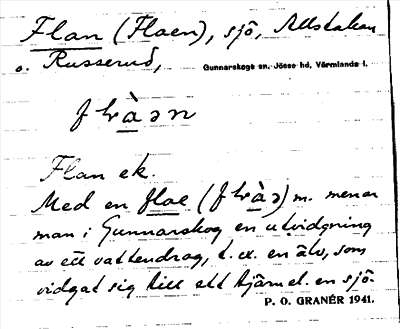 Flan (Flaen), sjö, Allstakan
o. Russerud,
Gunnarskogs sn. Jösse hd, Värmlands l.
flàən
Flan ek.
Med en flae (flàə) m. menar
man i Gunnarskog en utvidgning
av ett vattendrag, t. ex. en älv, som
vidgat sig till ett tjärn el. en sjö.
P. O. GRANÉR 1941.